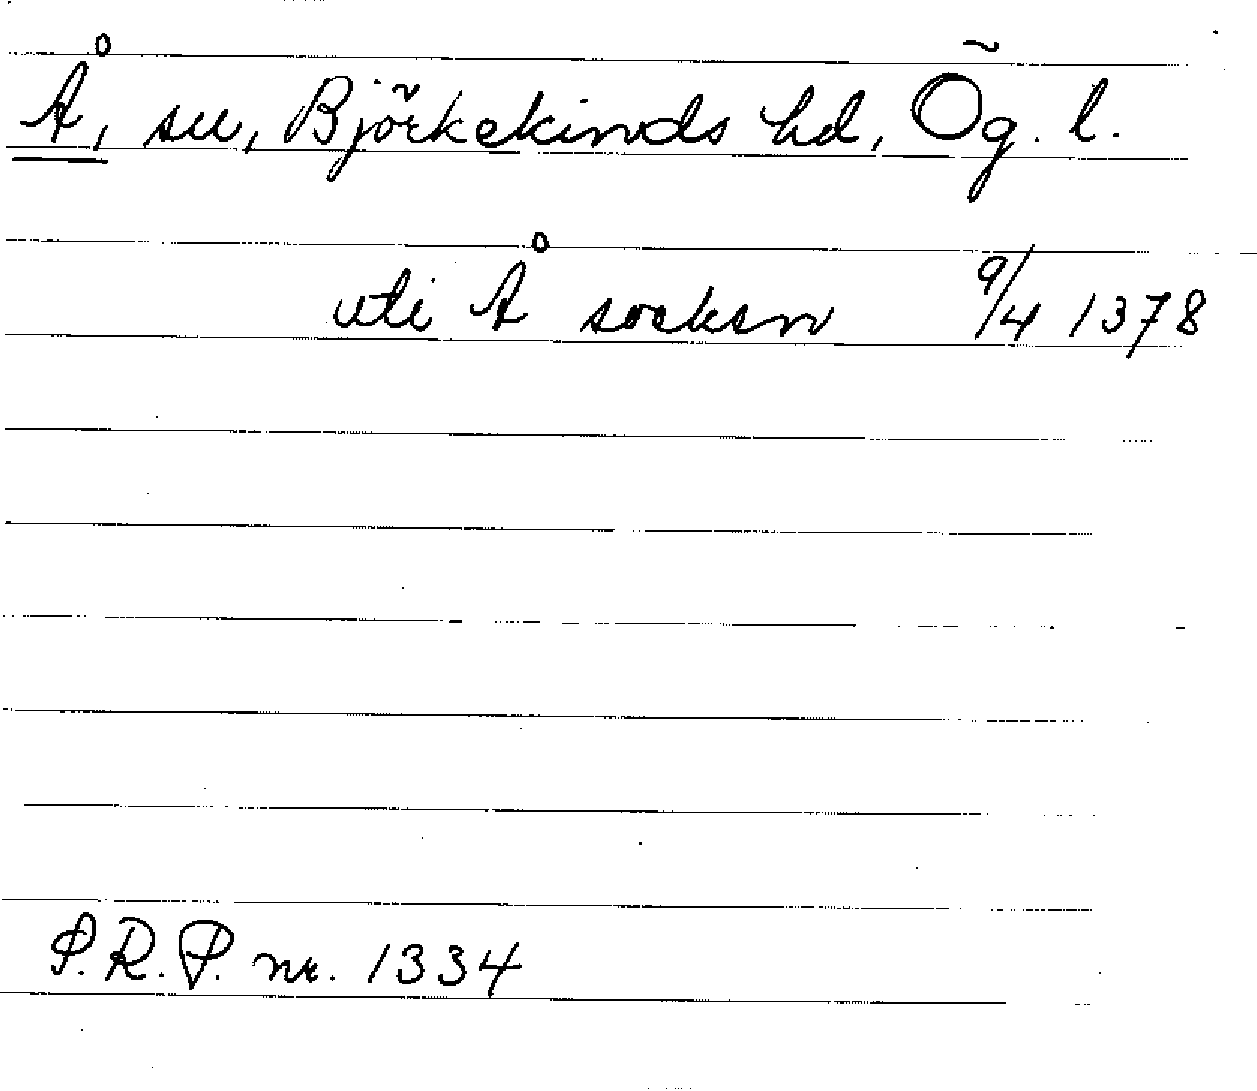 Å, sn, Björkekinds hd, Ög. l.
uti Å socken 9/4 1378
S.R.P. nr. 1334